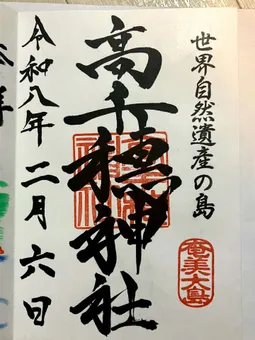 世界自然遺産の島
奄美大島
高千穂神社
令和八年二月六日